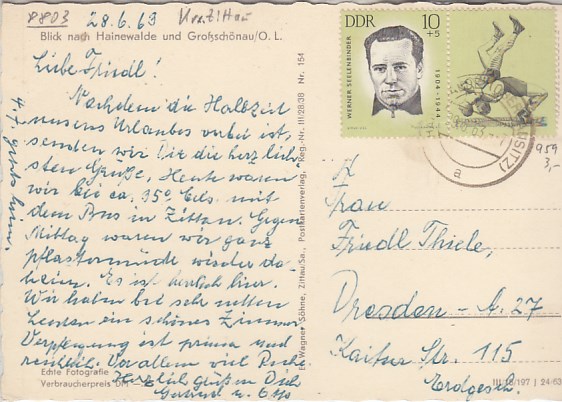 8803
28.6.63
Kr. Zittau
Blick nach Hainewalde und Großschönau/O. L.
Liebe Friedl!
Nachdem die Halbzeit
unseres Urlaubes vorbei ist,
senden wir Dir die herzlich-
sten Grüße. Heute waren
wir bei ca. 35° Cels. mit
dem Bus in Zittau. Gegen
Mittag waren wir ganz
pflastermüde wieder da-
heim. Es ist herrlich hier.
Wir haben bei sehr netten
Leuten ein schönes Zimmer
Verpflegung ist prima und
reichlich. Vor allem viel Ruhe.
Herzlich grüßen Dich
Gertrud u. Otto
Echte Fotografie
Verbraucherpreis DM
E. Wagner Söhne, Zittau/Sa., Postkartenverlag, Reg.-Nr. III/28/38 Nr. 154
DDR 10
+5
WERNER SEELENBINDER
1904-1944
USITZ)
a
959
3,-
Frau
Friedl Thiele,
Dresden - A. 27
Kaitzer Str. 115
Erdgesch.
24/63